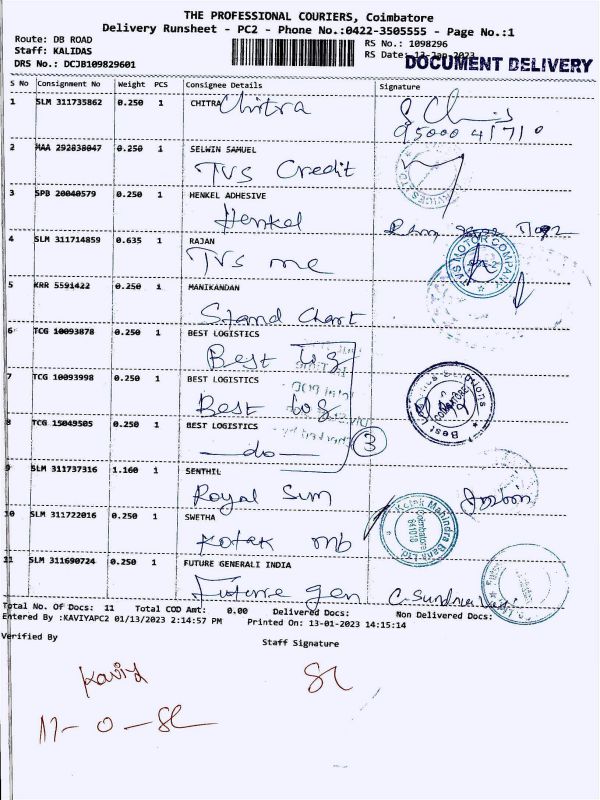 THE PROFESSIONAL COURIERS, Coimbatore
Delivery Runsheet - PC2 - Phone No.:0422-3505555 - Page No.:1
Route: DB ROAD
RS No.: 1098296
Staff: KALIDAS
RS Date: 13-Jan-2023
DRS No.: DCJB109829601
DOCUMENT DELIVERY
S No Consignment No Weight PCS Consignee Details Signature
1 SLM 311735862 0.250 1 CHITRA Chitra
95000 41710
2 MAA 292838047 0.250 1 SELWIN SAMUEL
TVS Credit
3 SPB 20040579 0.250 1 HENKEL ADHESIVE
Henkel
4 SLM 311714859 0.635 1 RAJAN
TVS mc
TVS MOTOR COMPANY
5 KRR 5591422 0.250 1 MANIKANDAN
Stand Chart
6 TCG 10093878 0.250 1 BEST LOGISTICS
Best log
7 TCG 10093998 0.250 1 BEST LOGISTICS
Best log
8 TCG 15049505 0.250 1 BEST LOGISTICS
—do— 3
9 SLM 311737316 1.160 1 SENTHIL
Royal Sun
10 SLM 311722016 0.250 1 SWETHA
Kotak mb
Kotak Mahindra Bank Ltd.
Coimbatore
641018
11 SLM 311690724 0.250 1 FUTURE GENERALI INDIA
Future gen
Total No. Of Docs: 11 Total COD Amt: 0.00 Delivered Docs: Non Delivered Docs:
Entered By :KAVIYAPC2 01/13/2023 2:14:57 PM Printed On: 13-01-2023 14:15:14
Verified By
Staff Signature
11-0-SL